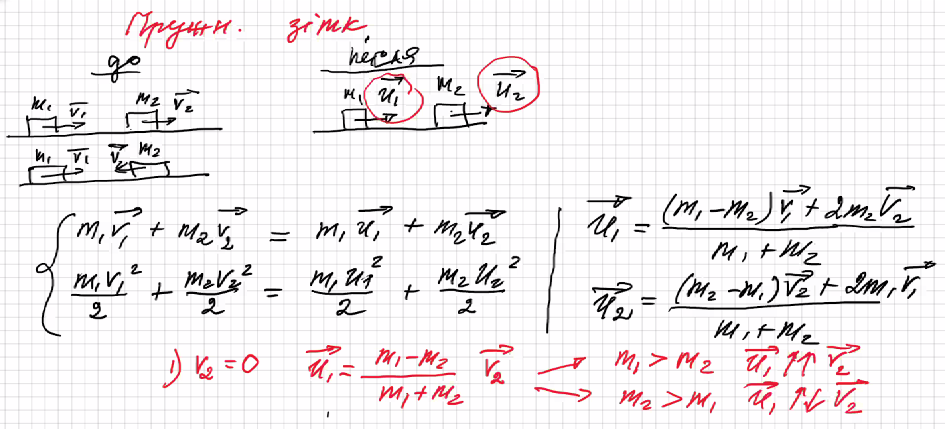 Пружн. зітк
до
після
m₁ v⃗₁ m₂ v⃗₂
m₁ u⃗₁ m₂ u⃗₂
m₁ v⃗₁ v⃗₂ m₂
m₁v⃗₁ + m₂v⃗₂ = m₁u⃗₁ + m₂u⃗₂
m₁v₁²/2 + m₂v₂²/2 = m₁u₁²/2 + m₂u₂²/2
u⃗₁ = ((m₁-m₂)v⃗₁ + 2m₂v⃗₂)/(m₁+m₂)
u⃗₂ = ((m₂-m₁)v⃗₂ + 2m₁v⃗₁)/(m₁+m₂)
1) v₂ = 0 u⃗₁ = (m₁-m₂)/(m₁+m₂) v⃗₂
m₁ > m₂ u⃗₁ ↑↑ v⃗₂
m₂ > m₁ u⃗₁ ↑↓ v⃗₂